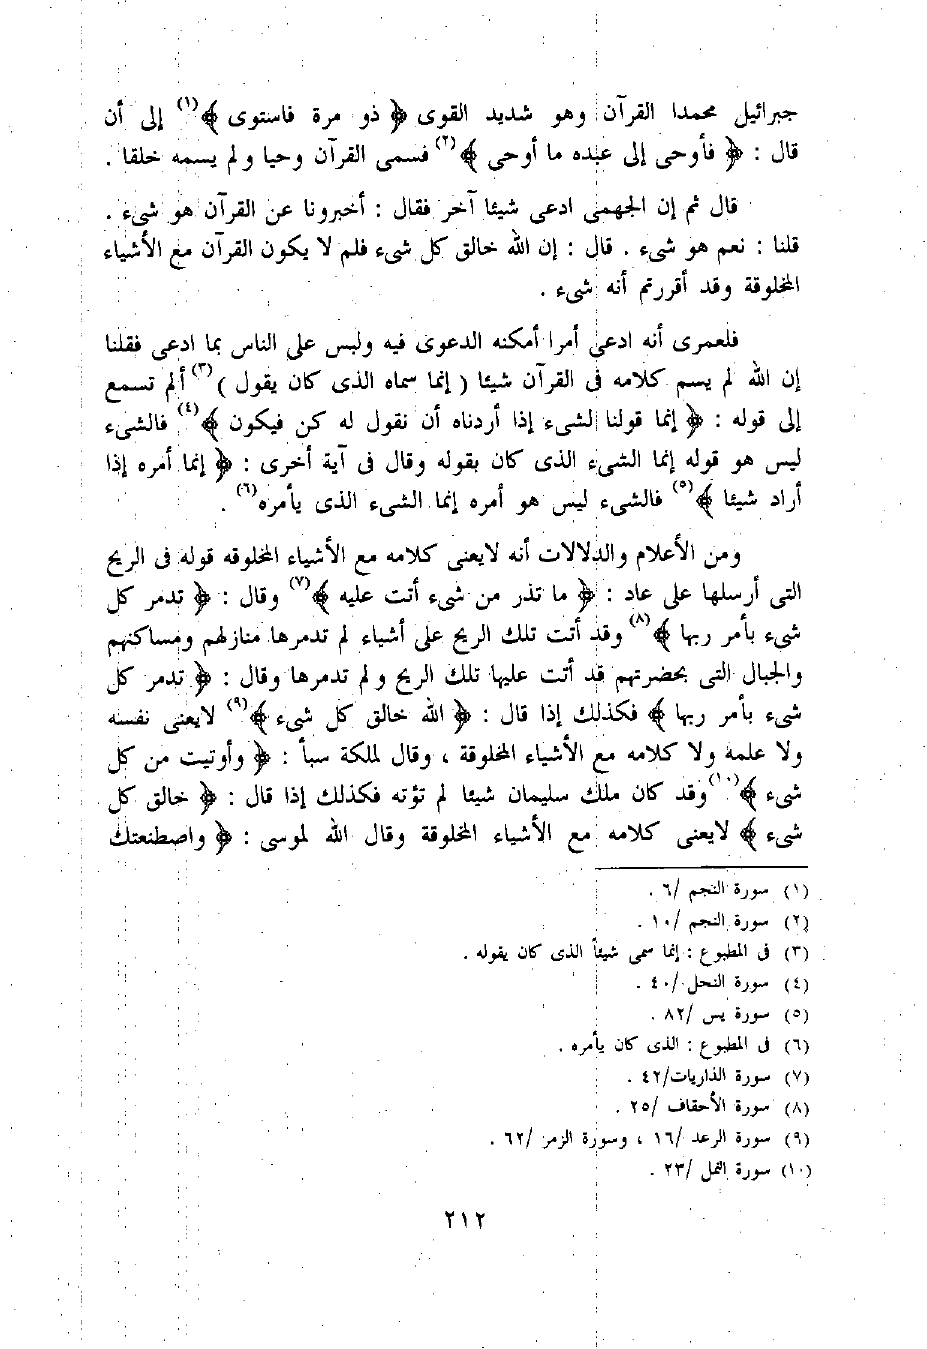 جبرائيل محمدا القرآن وهو شديد القوى ﴿ ذو مرة فاستوى ﴾(١) إلى أن
قال : ﴿ فأوحى إلى عبده ما أوحى ﴾(٢) فسمى القرآن وحيا ولم يسمه خلقا .
قال ثم إن الجهمى ادعى شيئا آخر فقال : أخبرونا عن القرآن هو شىء .
قلنا : نعم هو شىء . قال : إن الله خالق كل شىء فلم لا يكون القرآن مع الأشياء
المخلوقة وقد أقررتم أنه شىء .
فلعمرى أنه ادعى أمرا أمكنه الدعوى فيه ولبس على الناس بما ادعى فقلنا
إن الله لم يسم كلامه فى القرآن شيئا ( إنما سماه الذى كان يقول )(٣) ألم تسمع
إلى قوله : ﴿ إنما قولنا لشىء إذا أردناه أن نقول له كن فيكون ﴾(٤) فالشىء
ليس هو قوله إنما الشىء الذى كان بقوله وقال فى آية أخرى : ﴿ إنما أمره إذا
أراد شيئا ﴾(٥) فالشىء ليس هو أمره إنما الشىء الذى يأمره(٦) .
ومن الأعلام والدلالات أنه لايعنى كلامه مع الأشياء المخلوقه قوله فى الريح
التى أرسلها على عاد : ﴿ ما تذر من شىء أتت عليه ﴾(٧) وقال : ﴿ تدمر كل
شىء بأمر ربها ﴾(٨) وقد أتت تلك الريح على أشياء لم تدمرها منازلهم ومساكنهم
والجبال التى بحضرتهم قد أتت عليها تلك الريح ولم تدمرها وقال : ﴿ تدمر كل
شىء بأمر ربها ﴾ فكذلك إذا قال : ﴿ الله خالق كل شىء ﴾(٩) لايعنى نفسه
ولا علمه ولا كلامه مع الأشياء المخلوقة ، وقال لملكة سبأ : ﴿ وأوتيت من كل
شىء ﴾(١٠) وقد كان ملك سليمان شيئا لم تؤته فكذلك إذا قال : ﴿ خالق كل
شىء ﴾ لايعنى كلامه مع الأشياء المخلوقة وقال الله لموسى : ﴿ واصطنعتك
(١) سورة النجم /٦ .
(٢) سورة النجم /١٠ .
(٣) فى المطبوع : إنما سمى شيئاً الذى كان يقوله .
(٤) سورة النحل /٤٠ .
(٥) سورة يس /٨٢ .
(٦) فى المطبوع : الذى كان يأمره .
(٧) سورة الذاريات/٤٢ .
(٨) سورة الأحقاف /٢٥ .
(٩) سورة الرعد /١٦ ، وسورة الزمر /٦٢ .
(١٠) سورة النمل /٢٣ .
٢١٢